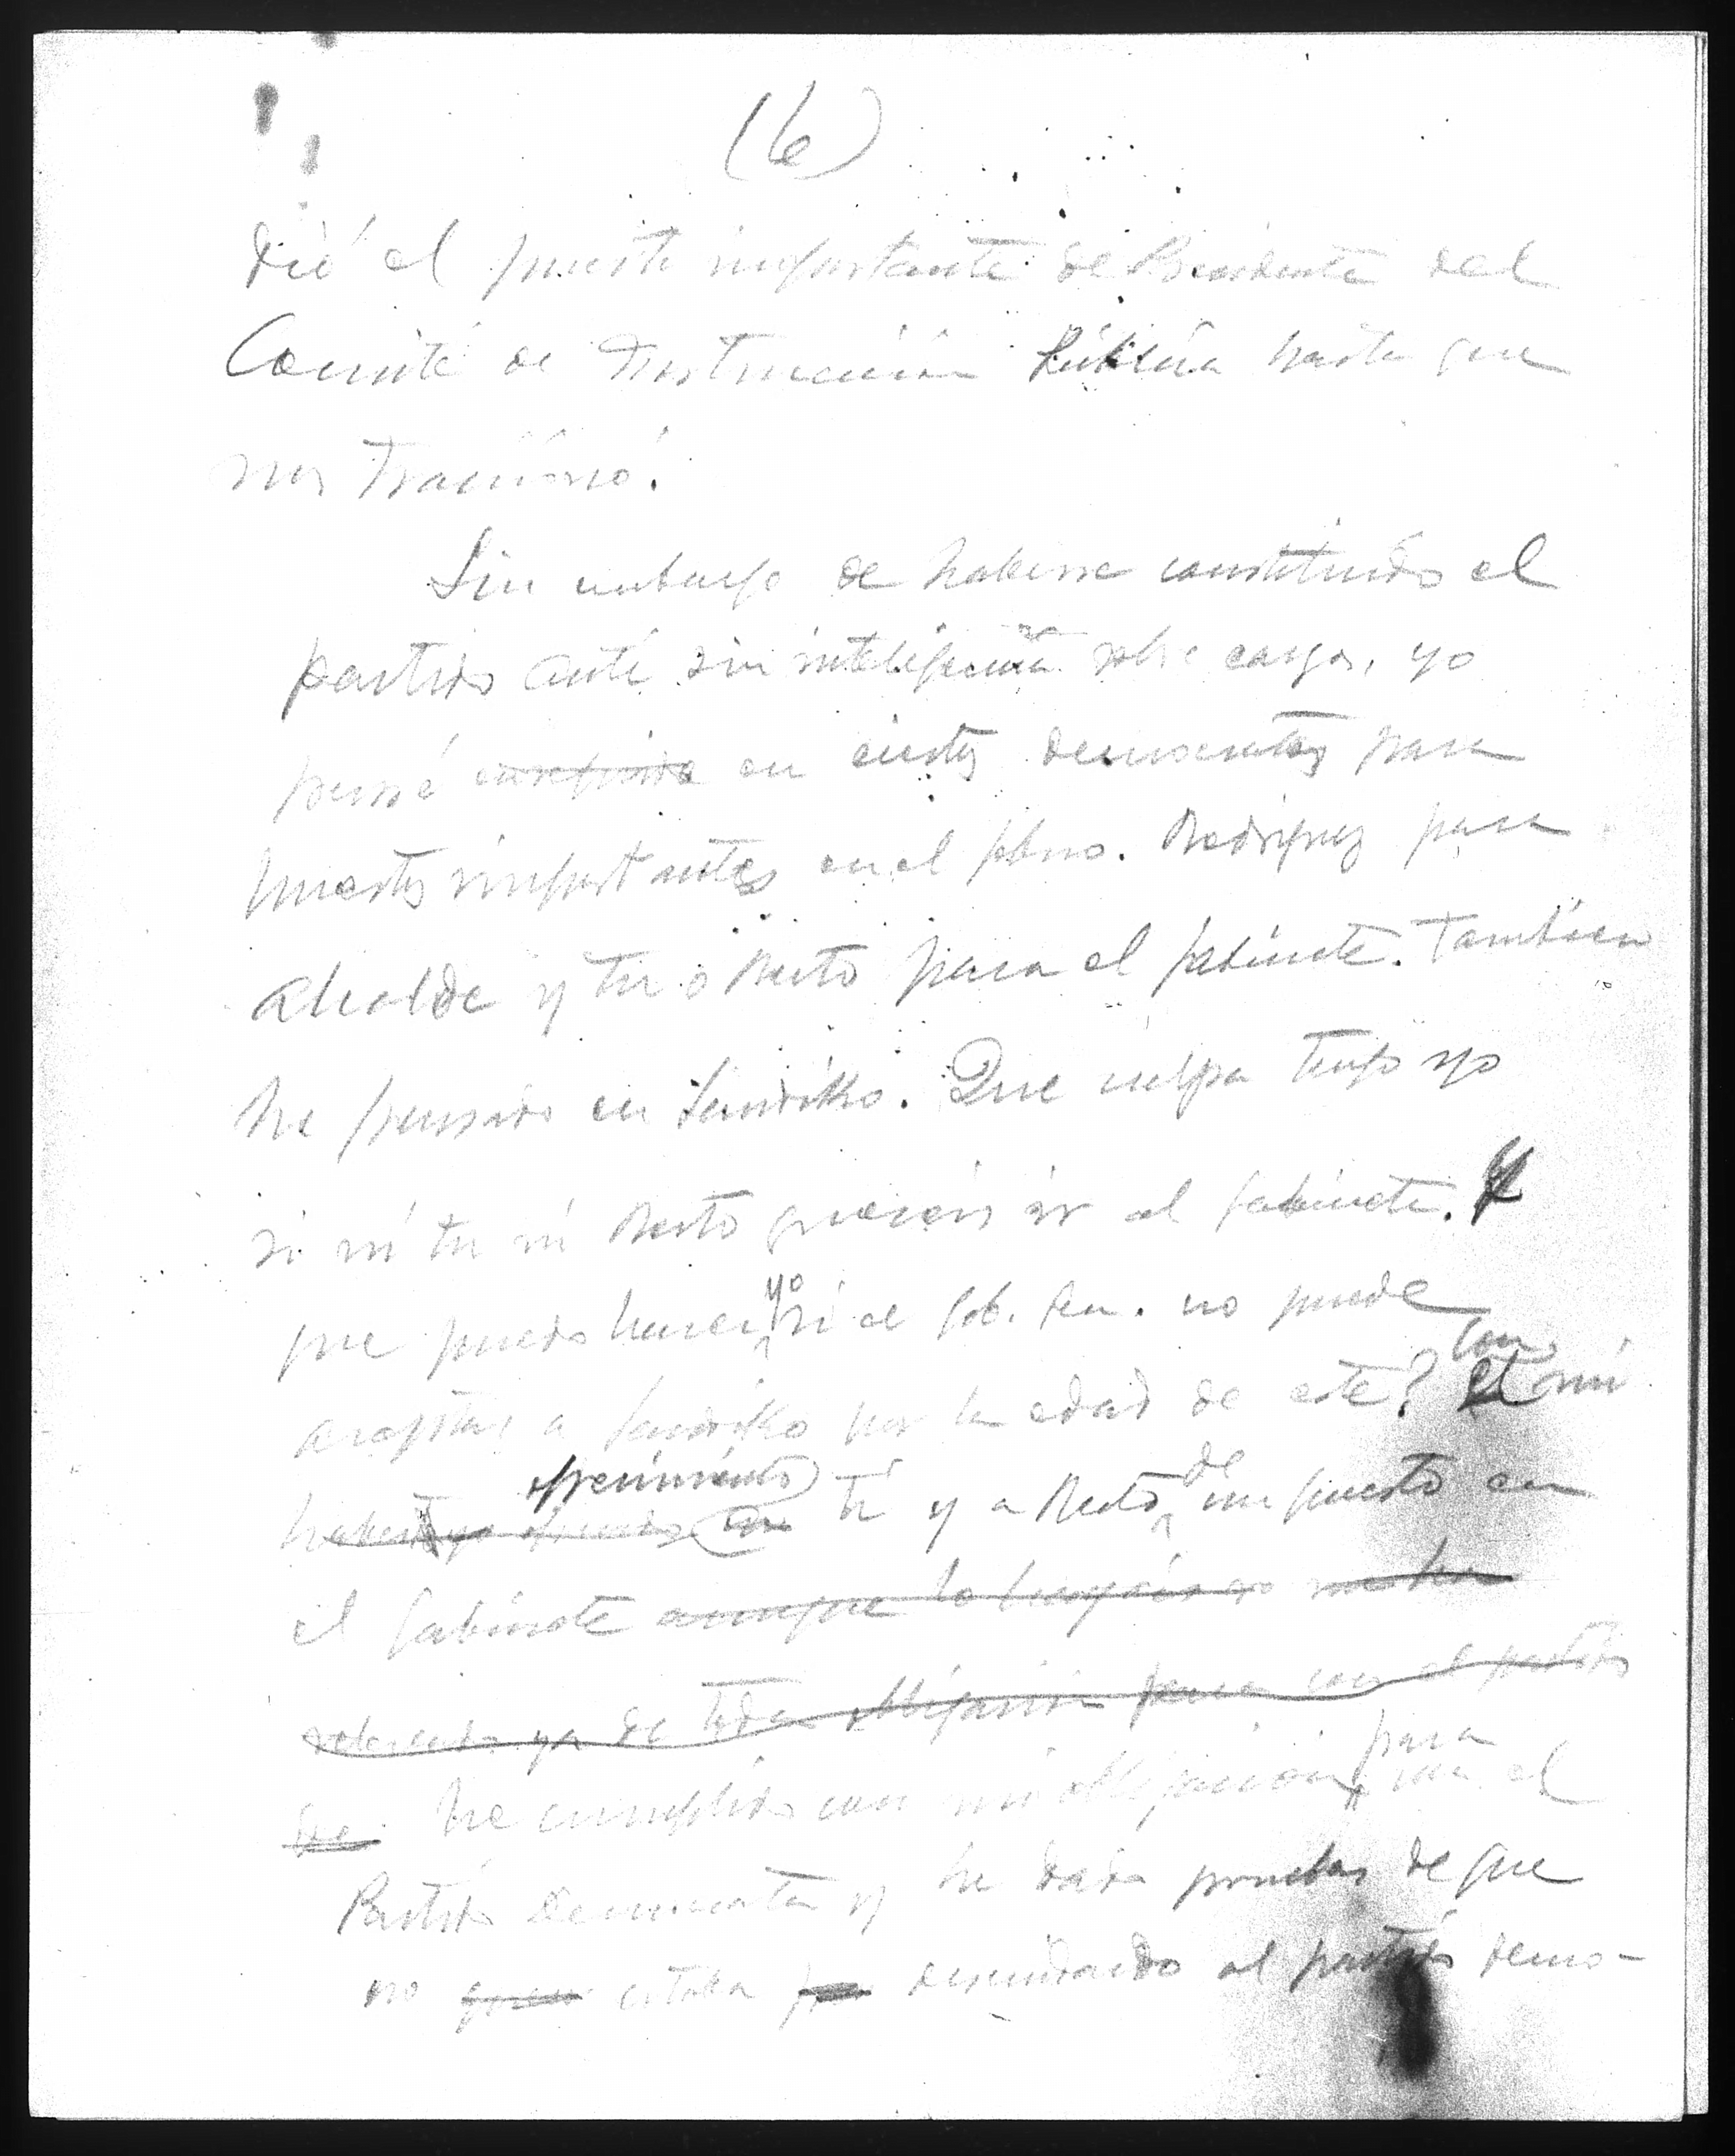 (6)
dió el puesto importante de Presidente del
Comité de Instrucción Pública hasta que
nos traicionó.
Sin embargo de haberse constituido el
partido ante sin inteligencia sobre cargos, yo
pensé en ciertos democratas para
puestos importantes en el gbno. Rodriguez para
alcalde y tu o Recto para el gabinete. Tambien
he pensado en Sandiko. Que culpa tengo yo
si ni tu ni Recto quereis ir al gabinete. Y
que puedo hacer yo si el Gob. Gen. no puede
aceptar a Sandiko por la edad de este? Con mi
ofrecimiento a ti y a Recto de un puesto en
el gabinete aunque lo hayais no
relevado ya de toda obligación para con el partido
he cumplido con mi obligacion para con el
Partido Democrata y he dado pruebas de que
no estaba descuidando al partido demo-